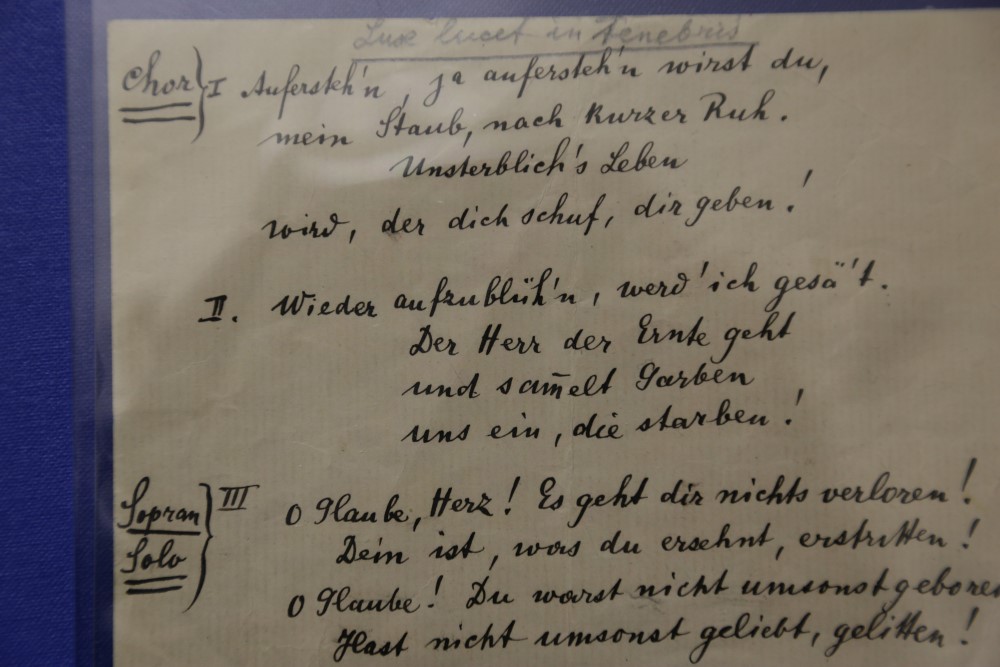 Lux lucet in Tenebris
Chor I Aufersteh'n, ja aufersteh'n wirst du,
mein Staub, nach kurzer Ruh.
Unsterblich's Leben
wird, der dich schuf, dir geben!
II. Wieder aufzublüh'n, werd' ich gesä't.
Der Herr der Ernte geht
und sam̅elt Garben
uns ein, die starben!
Sopran Solo III O Glaube, Herz! Es geht dir nichts verloren!
Dein ist, was du ersehnt, erstritten!
O Glaube! Du warst nicht umsonst geboren
Hast nicht umsonst geliebt, gelitten!